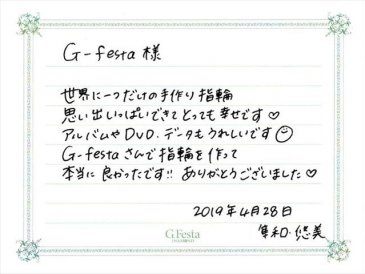 G-festa 様
世界に一つだけの手作り指輪
思い出いっぱいできてとっても幸せです♡
アルバムやDVD、データもうれしいです☺
G-festaさんで指輪を作って
本当に良かったです!! ありがとうございました♡
2019年4月28日
隼和・悠美
G.Festa